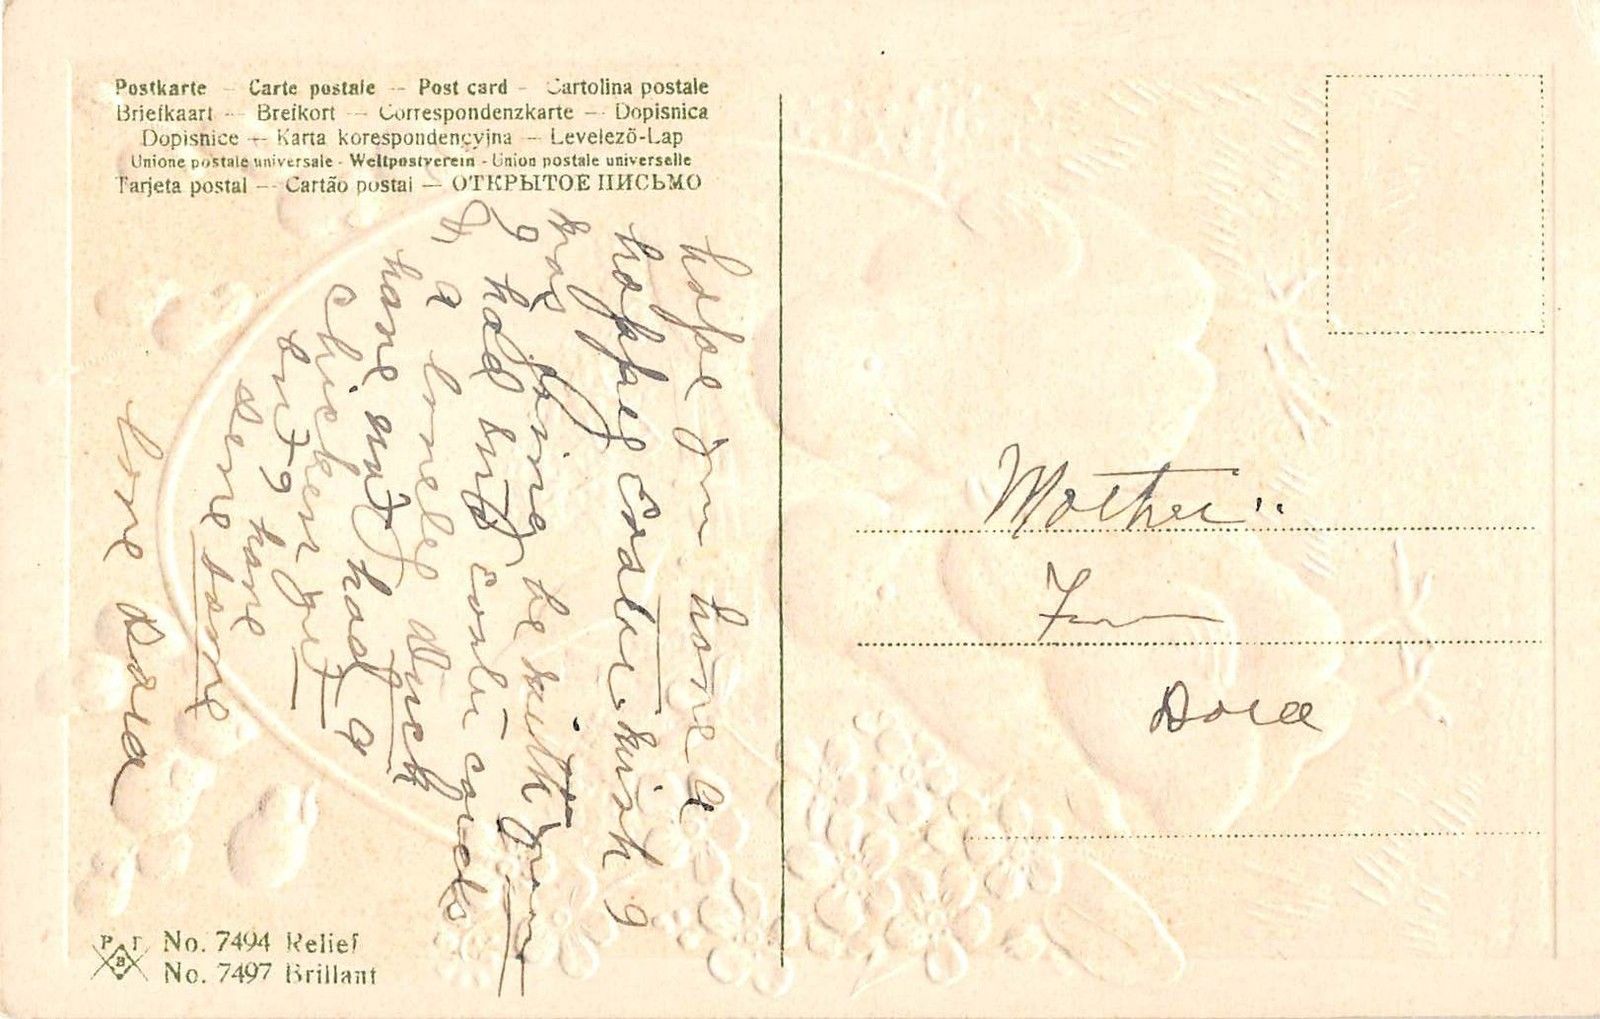 Postkarte – Carte postale – Post card – Cartolina postale
Briefkaart – Brefkort – Correspondenzkarte – Dopisnica
Dopisnice – Karta korespondencyjna – Levelezõ-Lap
Unione postale universale - Weltpostverein - Union postale universelle
Tarjeta postal – Cartão postal – ОТКРЫТОЕ ПИСЬМО
hope you have a
happy Easter. wish I
was going to be with you
I had
a lonely Duck
have not had a
chicken yet
but I have
love Dora
P F B
No. 7494 Relief
No. 7497 Brillant
Mother
From
Dora